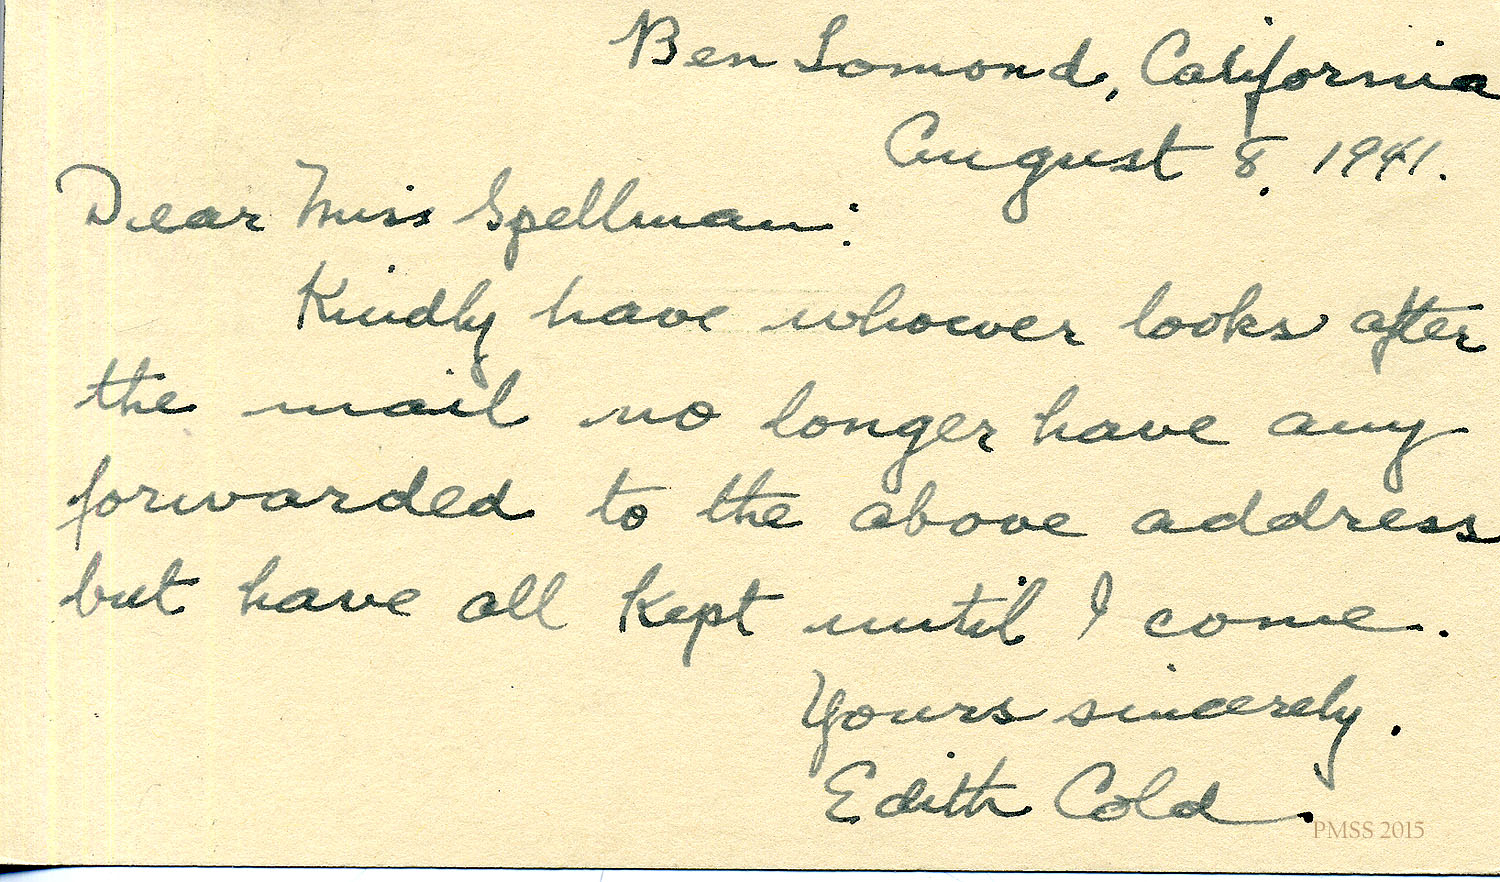 Ben Lomond, California
August 8, 1941.
Dear Miss Spellman:
Kindly have whoever looks after
the mail no longer have any
forwarded to the above address
but have all kept until I come.
Yours sincerely.
Edith Cold.
PMSS 2015